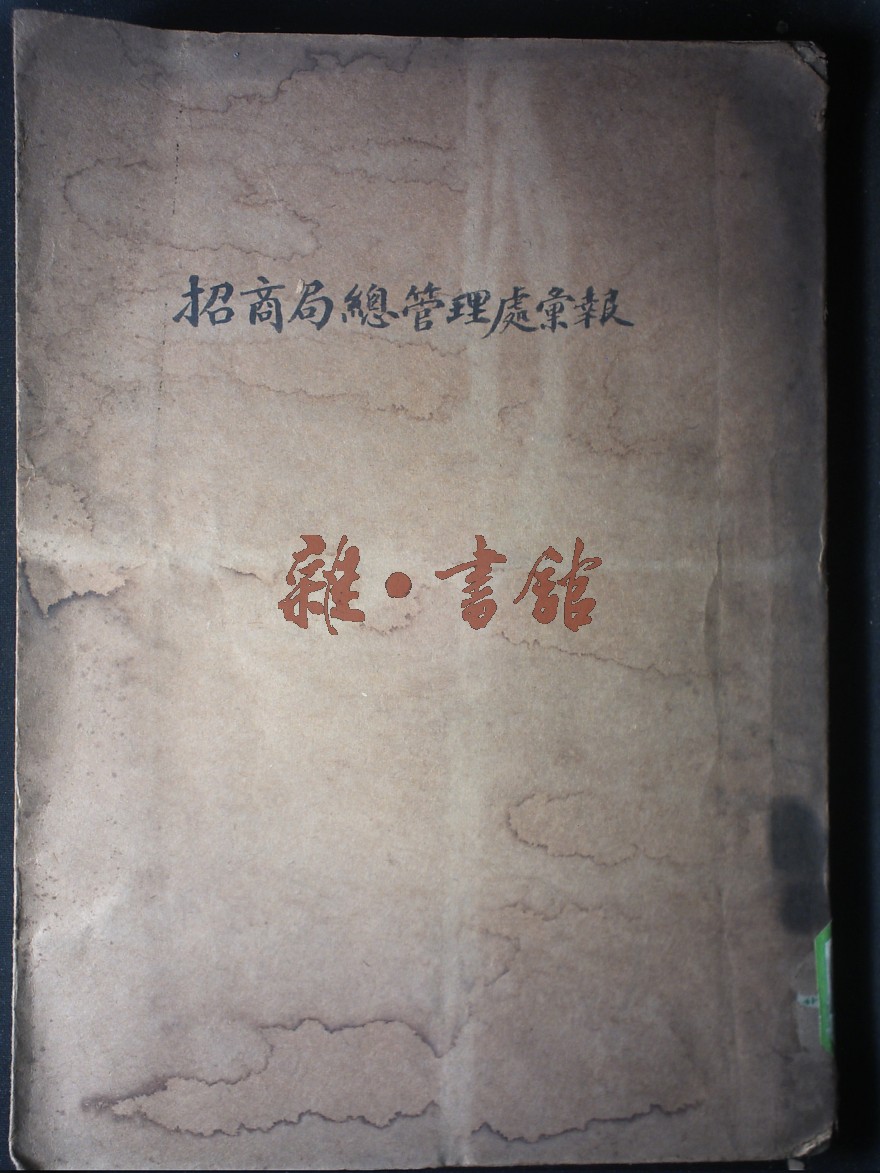 招商局總管理處彙報
雜·書館